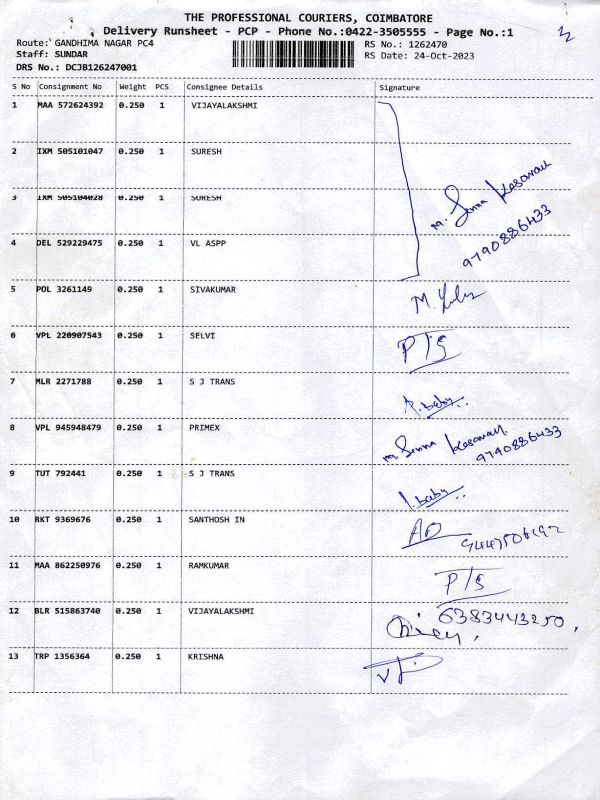 THE PROFESSIONAL COURIERS, COIMBATORE
Delivery Runsheet - PCP - Phone No.:0422-3505555 - Page No.:1
Route: GANDHIMA NAGAR PC4 RS No.: 1262470
Staff: SUNDAR RS Date: 24-Oct-2023
DRS No.: DCJB126247001
S No Consignment No Weight PCS Consignee Details Signature
1 MAA 572624392 0.250 1 VIJAYALAKSHMI
2 IXM 505101047 0.250 1 SURESH
3 IXM 505104028 0.250 1 SURESH
9790886433
4 DEL 529229475 0.250 1 VL ASPP
5 POL 3261149 0.250 1 SIVAKUMAR M.
6 VPL 220907543 0.250 1 SELVI P/S
7 MLR 2271788 0.250 1 S J TRANS P. baby
8 VPL 945948479 0.250 1 PRIMEX 9790886433
9 TUT 792441 0.250 1 S J TRANS baby
10 RKT 9369676 0.250 1 SANTHOSH IN
11 MAA 862250976 0.250 1 RAMKUMAR P/S
12 BLR 515863740 0.250 1 VIJAYALAKSHMI 6383443250,
13 TRP 1356364 0.250 1 KRISHNA